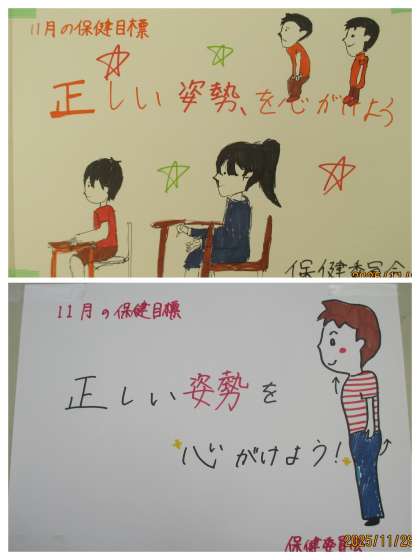 11月の保健目標
正しい姿勢、を心がけよう
保健委員会
11月の保健目標
正しい姿勢を
心がけよう!
保健委員会
2025/11/28